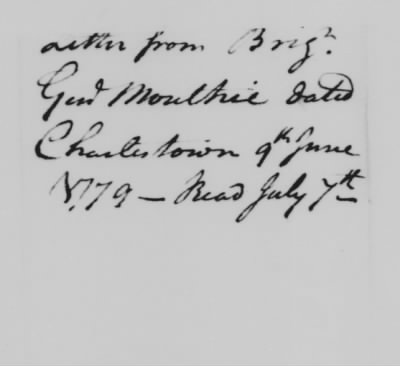 Letter from Brigr.
Genl Moultrie dated
Charlestown 9th June
1779 — Read July 7th